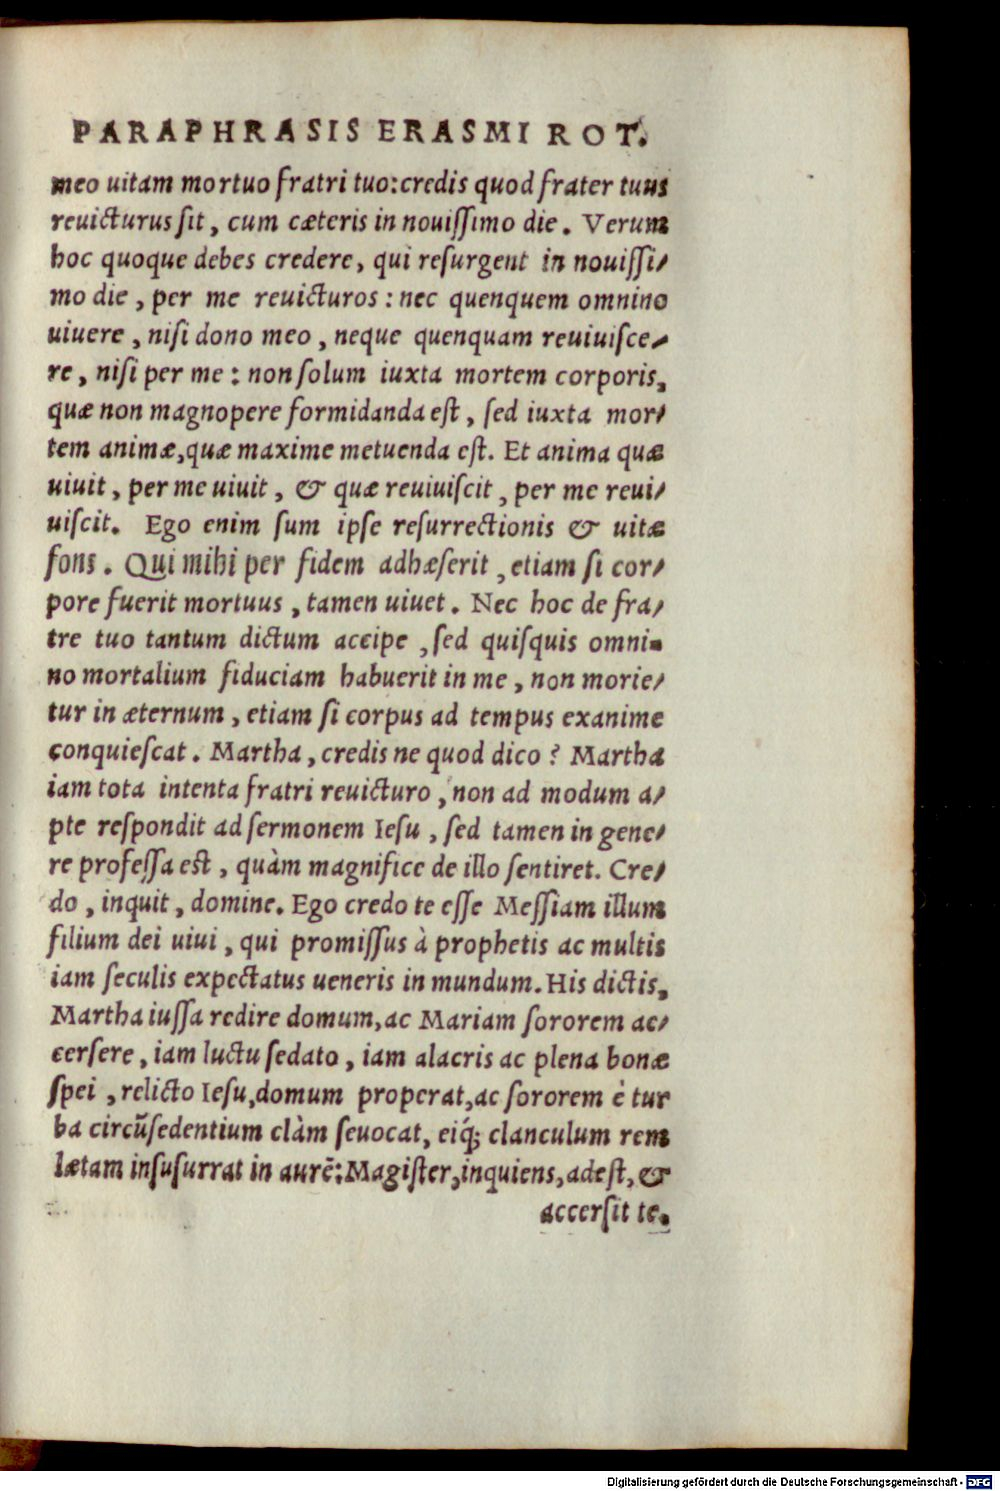 PARAPHRASIS ERASMI ROT.
meo uitam mortuo fratri tuo: credis quod frater tuus
reuicturus ſit, cum cæteris in nouiſſimo die. Verum
hoc quoque debes credere, qui reſurgent in nouiſſi/
mo die, per me reuicturos: nec quenquem omnino
uiuere, niſi dono meo, neque quenquam reuiuiſce/
re, niſi per me: non ſolum iuxta mortem corporis,
quæ non magnopere formidanda eſt, ſed iuxta mor/
tem animæ, quæ maxime metuenda eſt. Et anima quæ
uiuit, per me uiuit, & quæ reuiuiſcit, per me reui/
uiſcit. Ego enim ſum ipſe reſurrectionis & uitæ
fons. Qui mihi per fidem adhæſerit, etiam ſi cor/
pore fuerit mortuus, tamen uiuet. Nec hoc de fra/
tre tuo tantum dictum accipe, ſed quiſquis omni-
no mortalium fiduciam habuerit in me, non morie/
tur in æternum, etiam ſi corpus ad tempus exanime
conquieſcat. Martha, credis ne quod dico? Martha
iam tota intenta fratri reuicturo, non ad modum a/
pte reſpondit ad ſermonem Ieſu, ſed tamen in gene/
re profeſſa eſt, quàm magnifice de illo ſentiret. Cre/
do, inquit, domine. Ego credo te eſſe Meſſiam illum
filium dei uiui, qui promiſſus à prophetis ac multis
iam ſeculis expectatus ueneris in mundum. His dictis,
Martha iuſſa redire domum, ac Mariam ſororem ac/
cerſere, iam luctu ſedato, iam alacris ac plena bonæ
ſpei, relicto Ieſu, domum properat, ac ſororem è tur
ba circũſedentium clàm ſeuocat, eiq́; clanculum rem
lætam inſuſurrat in aurẽ: Magiſter, inquiens, adeſt, &
accerſit te.
Digitalisierung gefördert durch die Deutsche Forschungsgemeinschaft - DFG